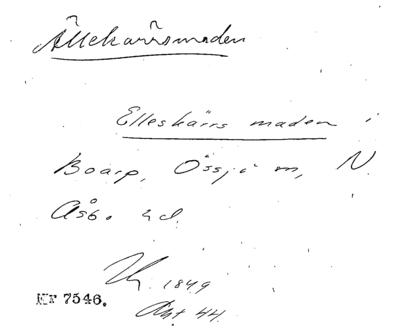 Ällekärrsmaden
Elleskärrs maden i
Boarp, Össjö m, N.
Åsbo hd.
1849
Akt 44.
Kr 7546.